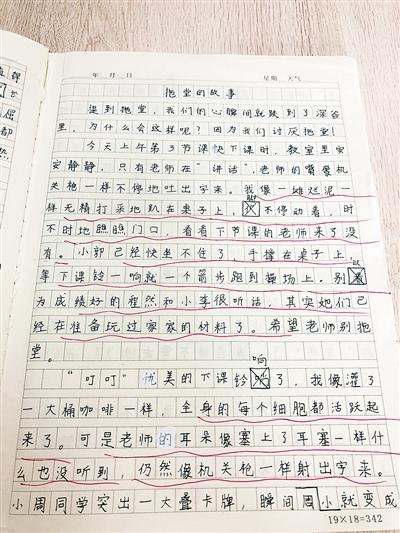 年 月 日 星期 天气
拖堂的故事
提到拖堂，我们的心瞬间就跌到了深谷
里，为什么会这样呢？因为我们讨厌拖堂！
今天上午第3节课快下课时，教室里安
安静静，只有老师在“讲话”，老师的嘴像机
关枪一样不停地吐出字来。我像一滩烂泥一
样无精打采地趴在桌子上，不停动着，时
不时地瞧瞧门口，看看下节课的老师来了没
有。小郭已经快坐不住了，手撑在桌子上，
等下课铃一响就一个箭步跑到操场上。别以
为成绩好的程然和小李很听话，其实她们已
经在准备玩过家家的材料了。希望老师别拖
堂。
响
“叮叮”优美的下课铃了，我像灌了
一大桶咖啡一样，全身的每个细胞都活跃起
来了。可是老师的耳朵像塞上了耳塞一样什
么也没听到，仍然像机关枪一样射出字来。
小周同学突出一大叠卡牌，瞬间周小就变成
19×18=342
课
屈
都
热